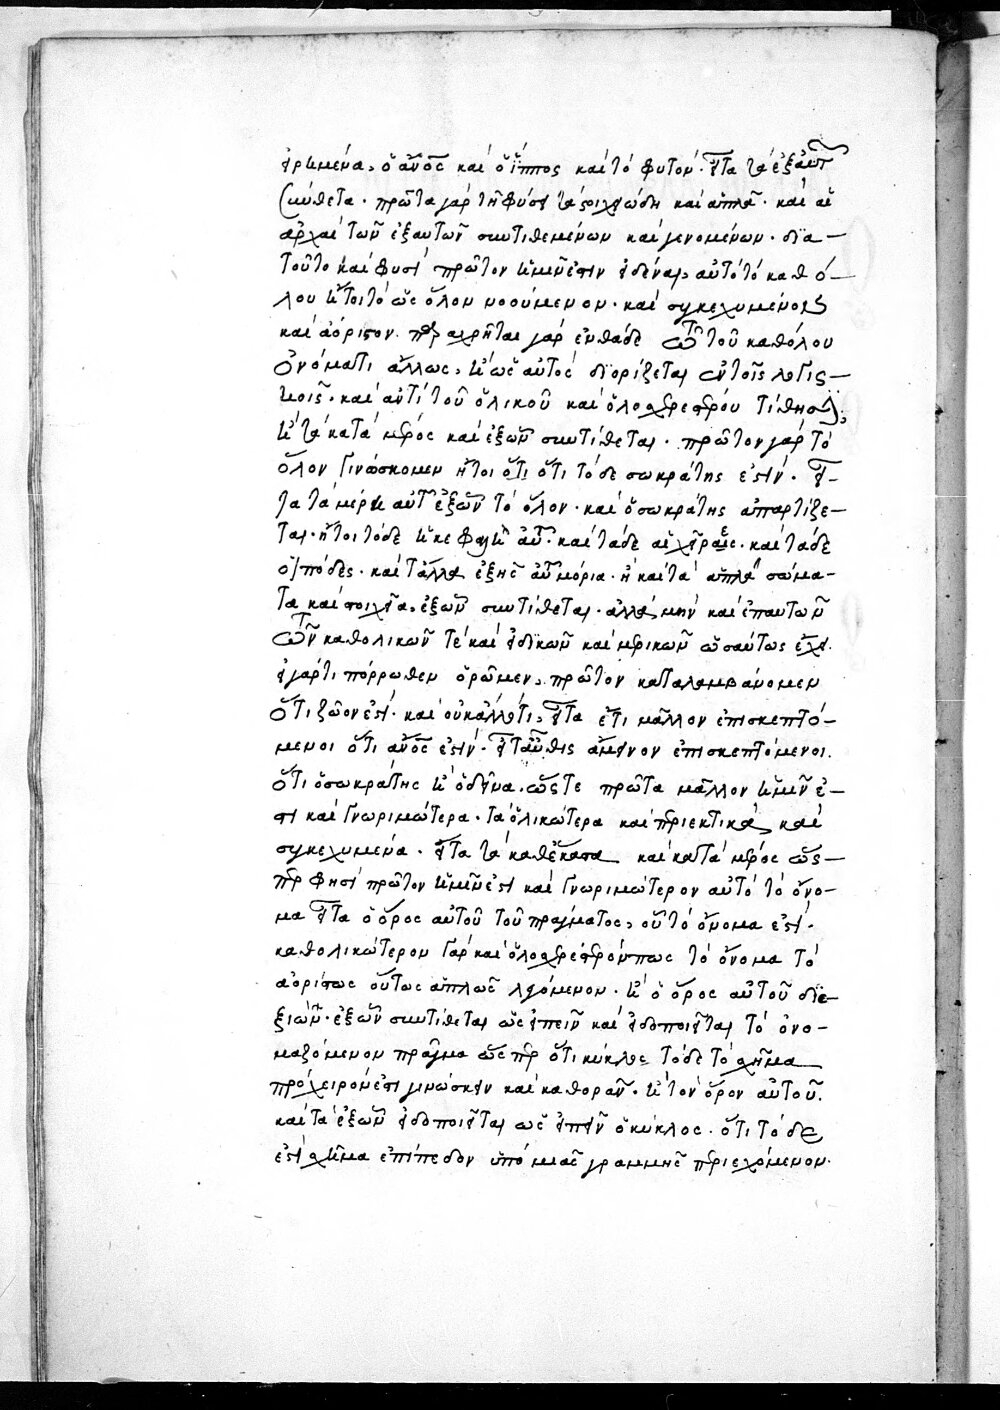 εἰρημένα, ὁ ἄνος καὶ ὁ ἵππος καὶ τὸ φυτόν· εἶτα τὰ ἐξ αὐτ
σύνθετα· πρῶτα γὰρ τῇ φύσει τὰ στοιχειώδη καὶ ἁπλᾶ· καὶ αἱ
ἀρχαὶ τῶν ἐξ αὐτῶν συντιθεμένων καὶ γενομένων· δϊα-
τοῦτο καὶ φησὶ πρῶτον ἡμῖν ἐστιν εἰδέναι, αὐτὸ τὸ καθό-
λου ἤτοι τὸ ὡς ὅλον νοούμενον· καὶ συγκεχυμένον
καὶ ἀόριστον. προσχρῆται γὰρ ἐνθάδε τῶ τοῦ καθόλου
ὀνόματι ἄλλως, ἢ ὡς αὐτὸς διορίζεται ἐν τοῖς λογισ-
τικοῖς· καὶ ἀντὶ τοῦ ὁλικοῦ καὶ ὁλοσχερεστέρου τίθησι,
ἢ τὰ κατὰ μέρος καὶ ἐξ ὧν συντίθεται· πρῶτον γὰρ τὸ
ὅλον γινώσκομεν ἤτοι ὅτι ὅτι τόδε σωκράτης ἐστίν· εἶ-
τα τὰ μέρη αὐτ ἐξ ὧν τὸ ὅλον· καὶ ὁ σωκράτης ἀπαρτίζε-
ται· ἤτοι τόδε ἡ κεφαλὴ αὐτ· καὶ τάδε αἱ χεῖρες· καὶ τάδε
οἱ πόδες· καὶ τἄλλα ἑξῆς αὐτ μόρια· ἢ καὶ τὰ ἁπλᾶ σώμα-
τα καὶ στοιχεῖα, ἐξ ὧν συντίθεται· ἀλλὰ μὴν καὶ ἐπ αὐτῶν
τῶν καθολικῶν τὲ καὶ εἰδικῶν καὶ μερικῶν ὡσαύτως ἔχει·
εἰ γάρ τι πόρρωθεν ὁρῶμεν, πρῶτον καταλαμβάνομεν
ὅτι ζῶον ἐστὶ· καὶ οὐκ ἄλλό τι, εἶτα ἔτι μᾶλλον ἐπισκεπτό-
μενοι ὅτι ἄνος ἐστίν· εἶτ αὖθις ἄμεινον ἐπισκεπτόμενοι.
ὅτι ὁ σωκράτης ἢ ὁ δεῖνα. ὥστε πρῶτα μᾶλλον ἡμῖν ἐ-
στι καὶ γνωριμώτερα· τὰ ὁλικώτερα καὶ περιεκτικὰ, καὶ
συγκεχυμένα· εἶτα τὰ καθέκαστα καὶ κατὰ μέρος ὥσ-
περ φησὶ πρῶτον ἡμῖν ἐστὶ καὶ γνωριμώτερον αὐτὸ τὸ ὄνο-
μα εἶτα ὁ ὅρος αὐτοῦ τοῦ πράγματος, οὗ τὸ ὄνομα ἐστὶ.
καθολικώτερον γὰρ καὶ ὁλοσχερέστερόν πως τὸ ὄνομα τὸ
ἀορίστως οὕτως ἁπλῶς λεγόμενον· ἢ ὁ ὅρος αὐτοῦ διε-
ξιὼν· ἐξ ὧν συντίθεται ὡς εἰπεῖν καὶ εἰδοποιεῖται τὸ ὀνο-
μαζόμενον πρᾶγμα ὥσπερ ὅτι κύκλος τόδε τὸ σχῆμα
πρόχειρόν ἐστι γινώσκειν καὶ καθορᾶν· ἢ τὸν ὅρον αὐτοῦ.
καὶ τὰ ἐξ ὧν εἰδοποιεῖται ὡς εἰπεῖν ὁ κύκλος· ὅτι τόδε
ἐστὶ σχῆμα ἐπίπεδον ὑπὸ μιᾶς γραμμῆς περιεχόμενον.